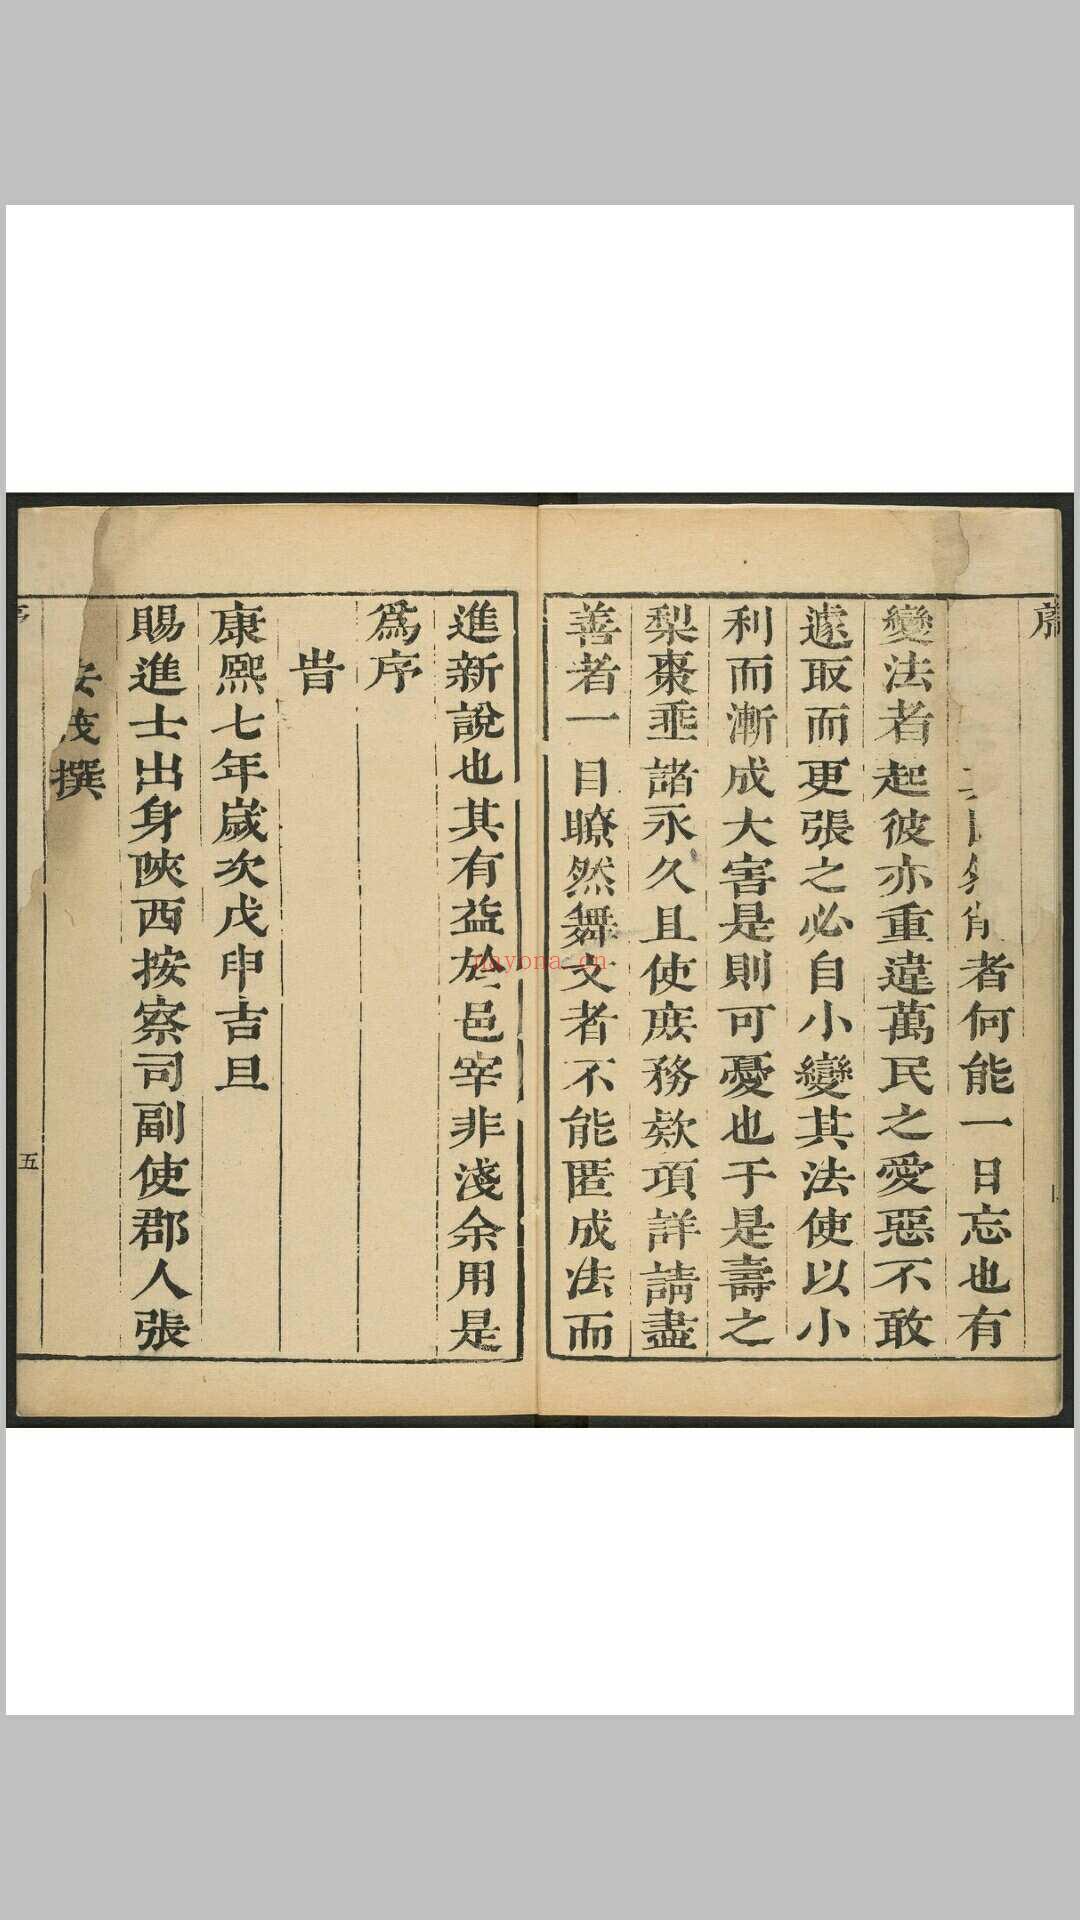 者何能一日忘也有
變法者起彼亦重違萬民之愛惡不敢
遽取而更張之必自小變其法使以小
利而漸成大害是則可憂也于是壽之
梨棗垂諸永久且使庶務欵項詳請盡
善者一目瞭然舞文者不能匿成法而
進新說也其有益於邑宰非淺余用是
爲序
旹
康熙七年歲次戊申吉旦
賜進士出身陝西按察司副使郡人張
茂撰
五
nayona.cn